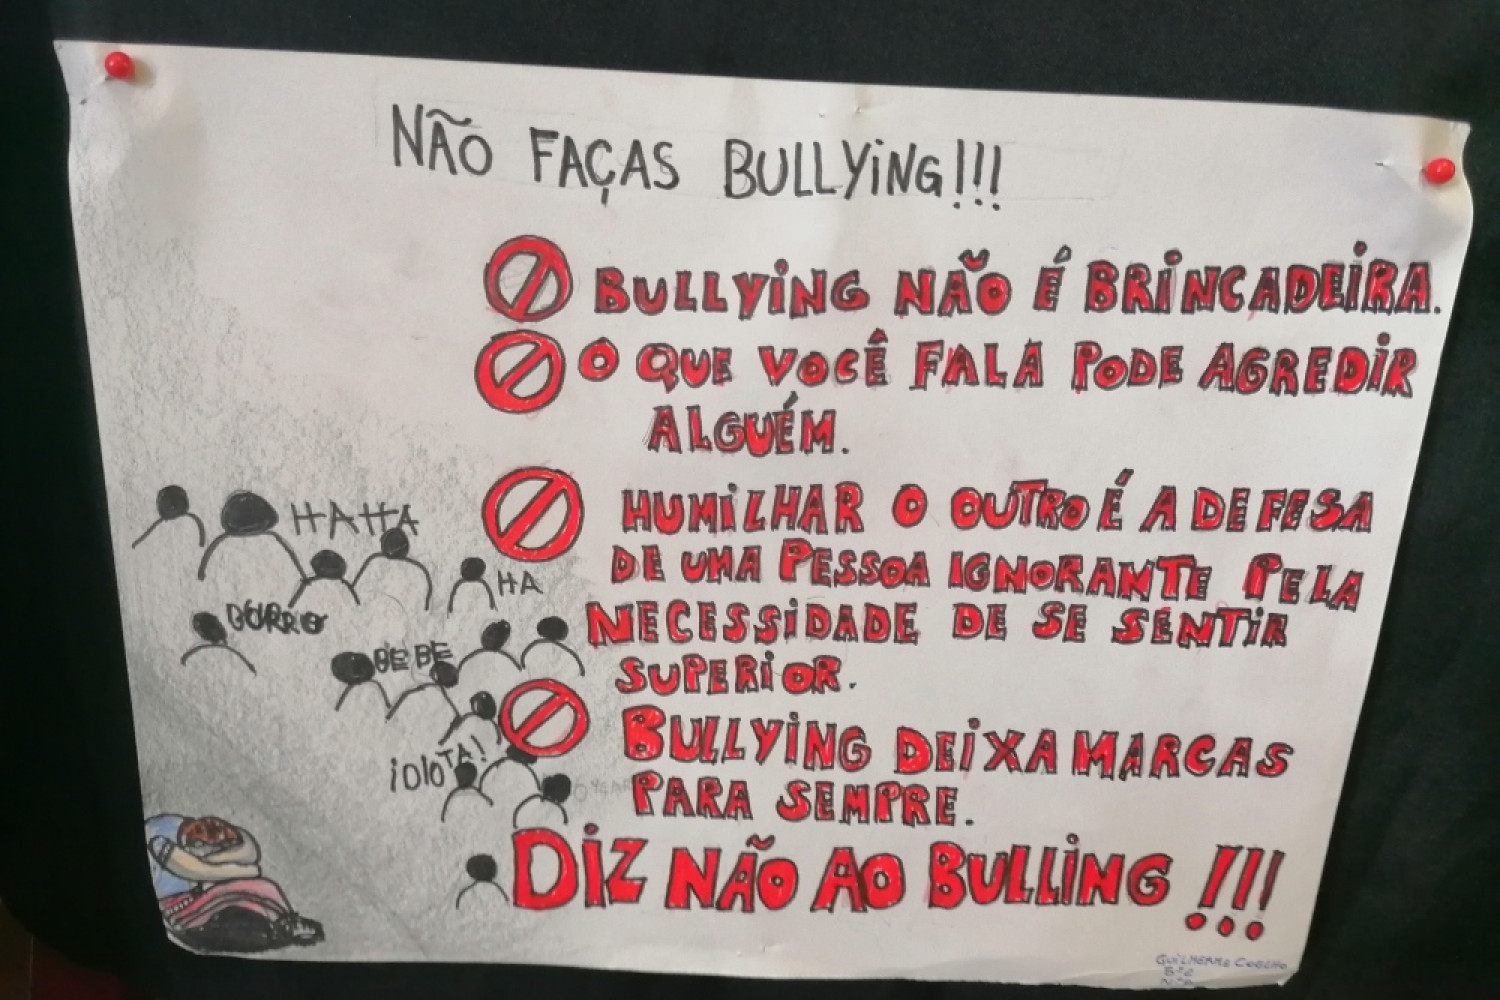 NÃO FAÇAS BULLYING!!!
BULLYING NÃO É BRINCADEIRA.
O QUE VOCÊ FALA PODE AGREDIR
ALGUÉM.
HUMILHAR O OUTRO É A DEFESA
DE UMA PESSOA IGNORANTE PELA
NECESSIDADE DE SE SENTIR
SUPERIOR.
BULLYING DEIXA MARCAS
PARA SEMPRE.
DIZ NÃO AO BULLING !!!
HAHA
HA
BURRO
BEBE
iDIOTA!
GUILHERME COELHO